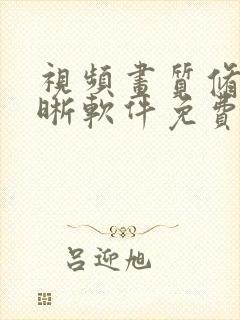 視頻畫質俢
晰軟件免費
吕迎旭